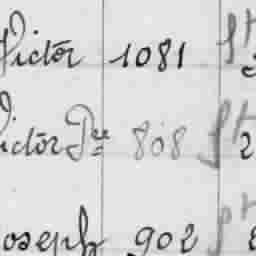 Victor 1081 St 2
Victor Pre 808 St 2
Joseph 902 St